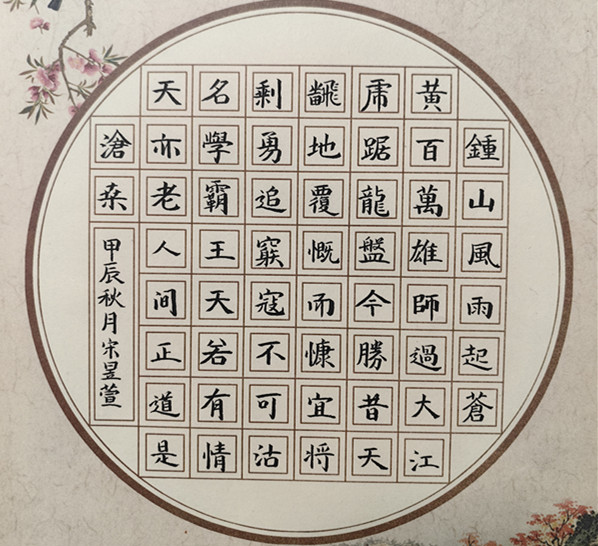 鍾山風雨起蒼
黃百萬雄師過大江
虎踞龍盤今勝昔天
飜地覆慨而慷宜將
剩勇追窮寇不可沽
名學霸王天若有情
天亦老人間正道是
滄桒
甲辰秋月宋昱萱